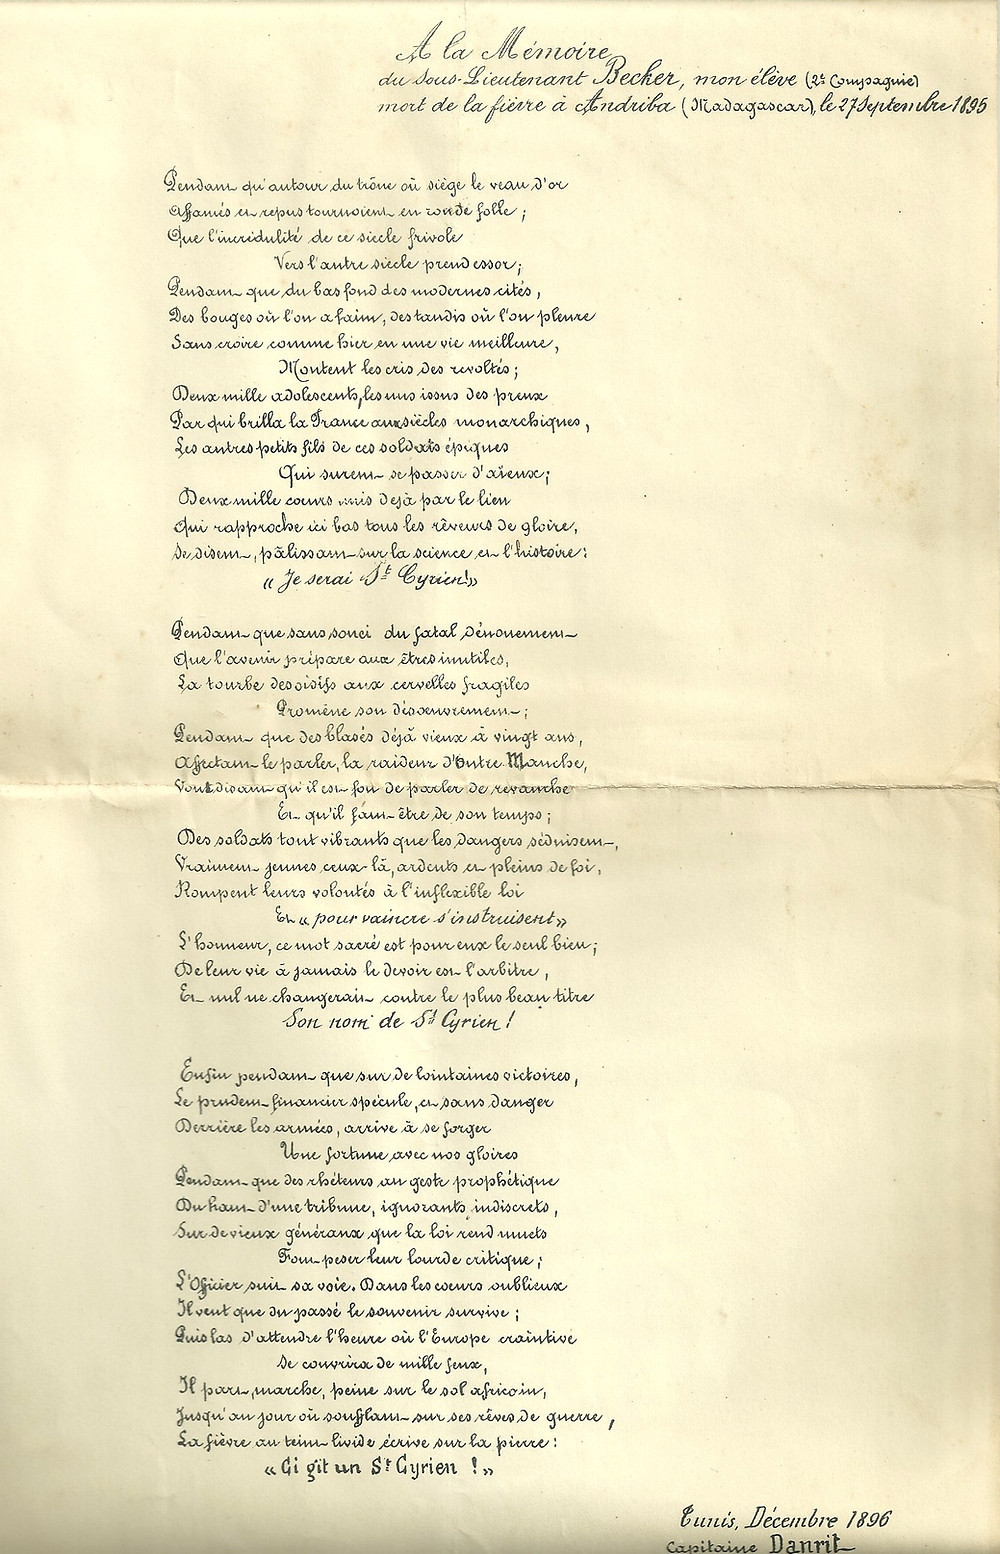 A la Mémoire
du Sous-Lieutenant Becker, mon élève (2e Compagnie)
mort de la fièvre à Andriba (Madagascar), le 27 Septembre 1895
Pendant qu'autour du trône où siège le veau d'or
Affamés et repus tournoient en ronde folle ;
Que l'incrédulité de ce siècle frivole
Vers l'autre siècle prend essor ;
Pendant que du bas fond des modernes cités,
Des bouges où l'on a faim, des taudis où l'on pleure
Sans croire comme hier en une vie meilleure,
Montent les cris des révoltés ;
Deux mille adolescents, les uns issus des preux
Par qui brilla la France aux siècles monarchiques,
Les autres petits fils de ces soldats épiques
Qui surent se passer d'aïeux ;
Deux mille cœurs unis dejà par le lien
Qui rapproche ici bas tous les rêveurs de gloire,
Se disent, pâlissant sur la science et l'histoire :
« Je serai St Cyrien ! »
Pendant que sans souci du fatal dénouement
Que l'avenir prépare aux êtres inutiles,
La tourbe des oisifs aux cervelles fragiles
Promène son désœuvrement ;
Pendant que des blasés déjà vieux à vingt ans,
Affectant le parler, la raideur d'Outre Manche,
Vont disant qu'il est fou de parler de revanche
Et qu'il faut être de son temps ;
Des soldats tout vibrants que les dangers séduisent,
Vraiment jeunes ceux-là, ardents et pleins de foi,
Rompent leurs volontés à l'inflexible loi
Et « pour vaincre s'instruisent »
L'honneur, ce mot sacré est pour eux le seul bien ;
De leur vie à jamais le devoir est l'arbitre,
Et nul ne changerait contre le plus beau titre
Son nom de St Cyrien !
Enfin pendant que sur de lointaines victoires,
Le prudent financier spécule, et sans danger
Derrière les armées, arrive à se forger
Une fortune avec nos gloires
Pendant que des rhéteurs au geste prophétique
Du haut d'une tribune, ignorants, indiscrets,
Sur de vieux généraux que la loi rend muets
Font peser leur lourde critique ;
L'Officier suit sa voie. Dans les cœurs oublieux
Il veut que du passé le souvenir survive ;
Puis las d'attendre l'heure où l'Europe craintive
Se couvrira de mille feux,
Il part, marche, peine sur le sol africain,
Jusqu'au jour où soufflant sur ses rêves de guerre,
La fièvre au teint livide écrive sur la pierre :
« Ci gît un St Cyrien ! »
Tunis, Décembre 1896
Capitaine Danrit